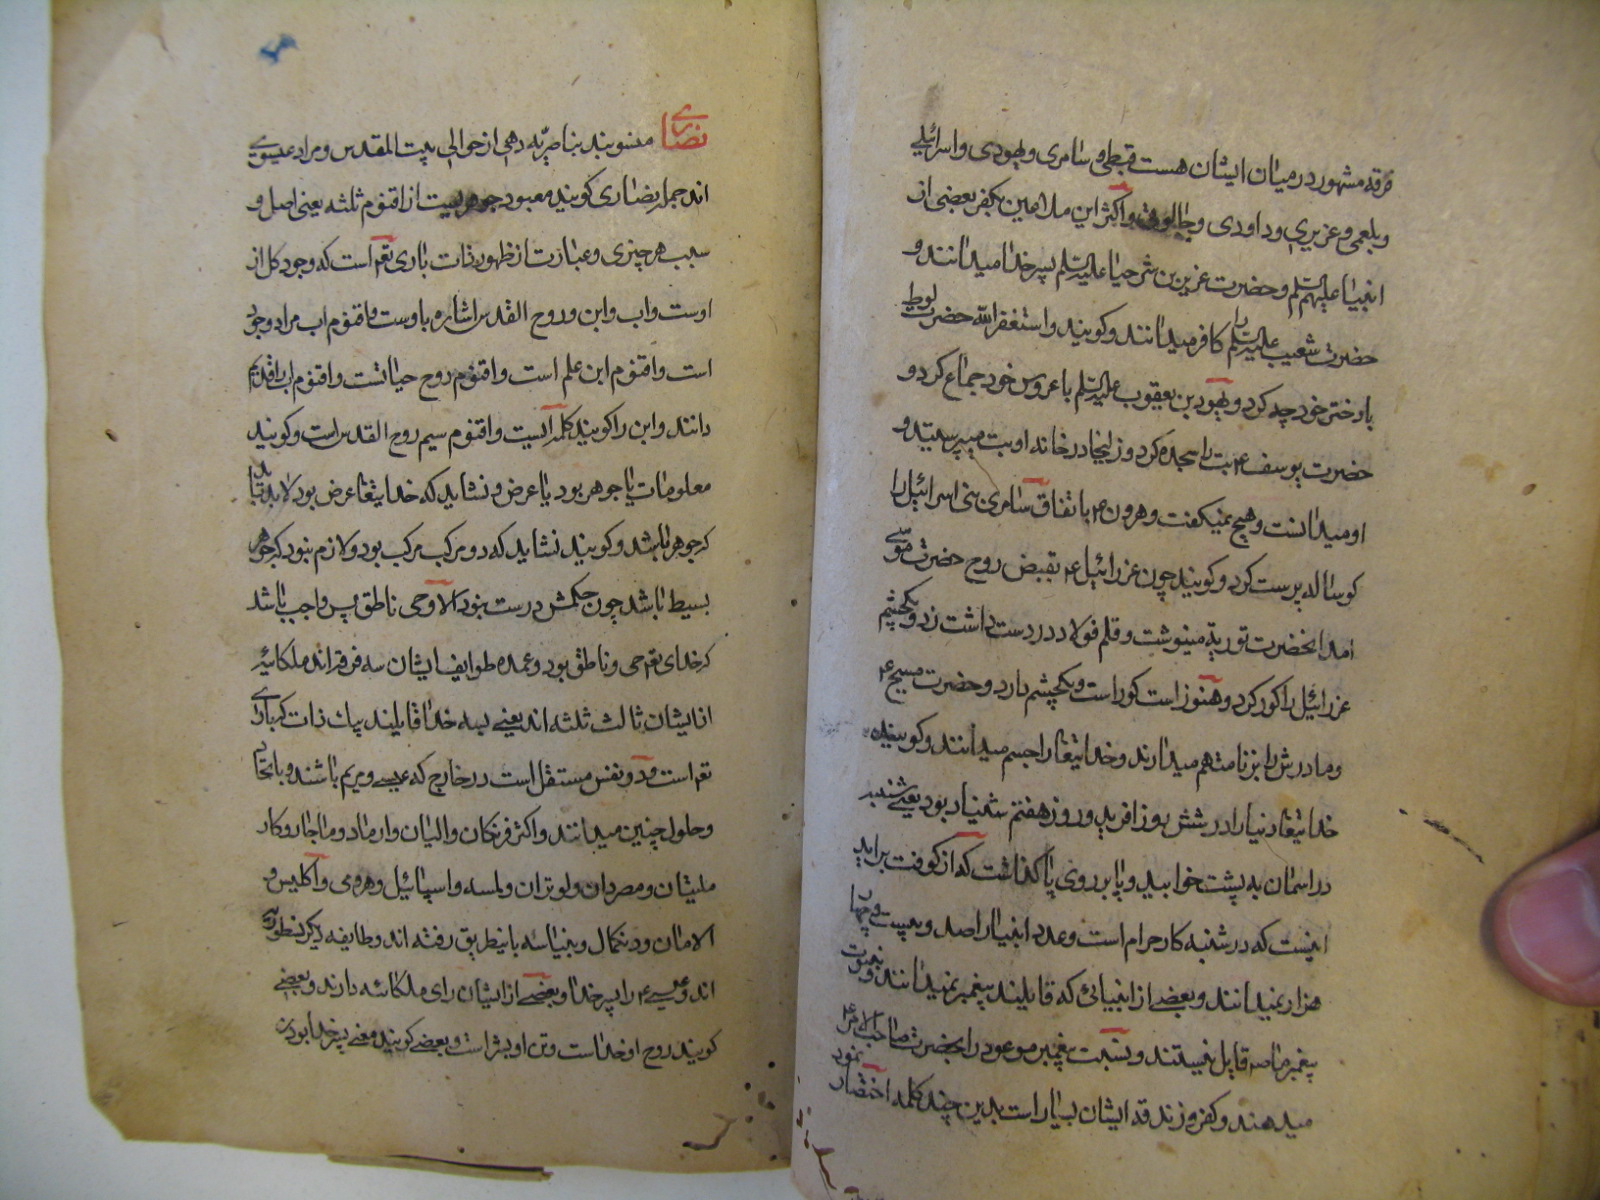 فرقه مشهور در میان ایشان هست قبطی و سامری و یهودی و اسرائیلی
و بلعمی و عزیری و داودی و جالوتی و اکثر این ملاعین بکفر بعضی از
انبیا علیهم السلم و حضرت عزیر بن شرحیا علیه السلم پسر خدا میدانند و
حضرت شعیب علیه السلم را کافر میدانند و کویند و استغفر الله حضرت لوط
با دختر خود چه کرد و یهود بن یعقوب علیه السلم با عروس خود جماع کرد و
حضرت یوسف ع بت را سجده کرد و زلیخا در خانه او بت میپرستید و
او میدانست و هیچ نمیکفت و هرون ع باتفاق سامری بنی اسرائیل را
کوساله پرست کرد و کویند چون عزرائیل ع بقبض روح حضرت موسی
امد انحضرت توریة مینوشت و قلم فولاد در دست داشت زد و یکچشم
عزرائیل را کور کرد و هنوز است کور است و یکچشم دارد و حضرت مسیح ع
و مادرش را بزنا متهم میدارند و خدایتعا را جسم میدانند و کویند
خدایتعا دنیا را در شش روز افرید و روز هفتم شنبار بود یعنی شنبه
در اسمان به پشت خوابید و پا بر روی پا کذاشت که از کوفت براید
اینست که در شنبه کار حرام است و عدد انبیا را صد و بیست و چهار
هزار نمیدانند و بعضی از انبیائی که قایلند پیغمبر نمیدانند و بنبوت
پیغمبر ما صه قایل نیستند و نسبت پیغمبر موعود را بحضرت صاحب الامر ع
میدهند و کفر و زندقه ایشان بسیار است بدین چند کلمه اختصار نمود
نصاری منسوبند بناصریه دهی از حوالی بیت المقدس و مراد عیسوی
اند جمله نصاری کویند معبود جوهریست از اقنوم ثلثه یعنی اصل و
سبب هر چیزی و عبارت از ظهور ذات باری تعم است که وجود کل از
اوست و اب و ابن و روح القدس اشاره باوست و اقنوم اب مراد وجود
است و اقنوم ابن علم است و اقنوم روح حیاتست و اقنوم اب را قدیم
دانند و ابن را کویند کلمه انست و اقنوم سیم روح القدس است و کویند
معلومات یا جوهر بود یا عرض و نشاید که خدایتعا عرض بود لابد باید
که جوهر باشد و کویند نشاید که دو مرکب مرکب بود و لازم بود که جوهر
بسیط باشد چون حکمش درست بود الا و حی ناطق پس واجب باشد
که خدای تعم حی و ناطق بود و عمده طوایف ایشان سه فرقه اند ملکائیه
ازایشان ثالث ثلثه اند یعنی بسه خدا قایلند یک ذات که باری
تعم است و دو نفس مستقل است در خارج که عیسی و مریم باشند و باتحاد
و حلول چنین میدانند و اکثر فرنکان و الیان و ارماد و ماجار و کار
ملیثان و مصردان و لوتران و لمسه و اسپائیل و هرومی و انکلیس و
الامان و و بنیاسه باینطریق رفته اند و طایفه دیکر نسطوری
اند و عیسی ع را پسر خدا و بعضی از ایشان رای ملکاسه دارند و بعضی
کویند روح او خداست و تن او بشر است و بعضی کویند معنی پسر خدا بودن